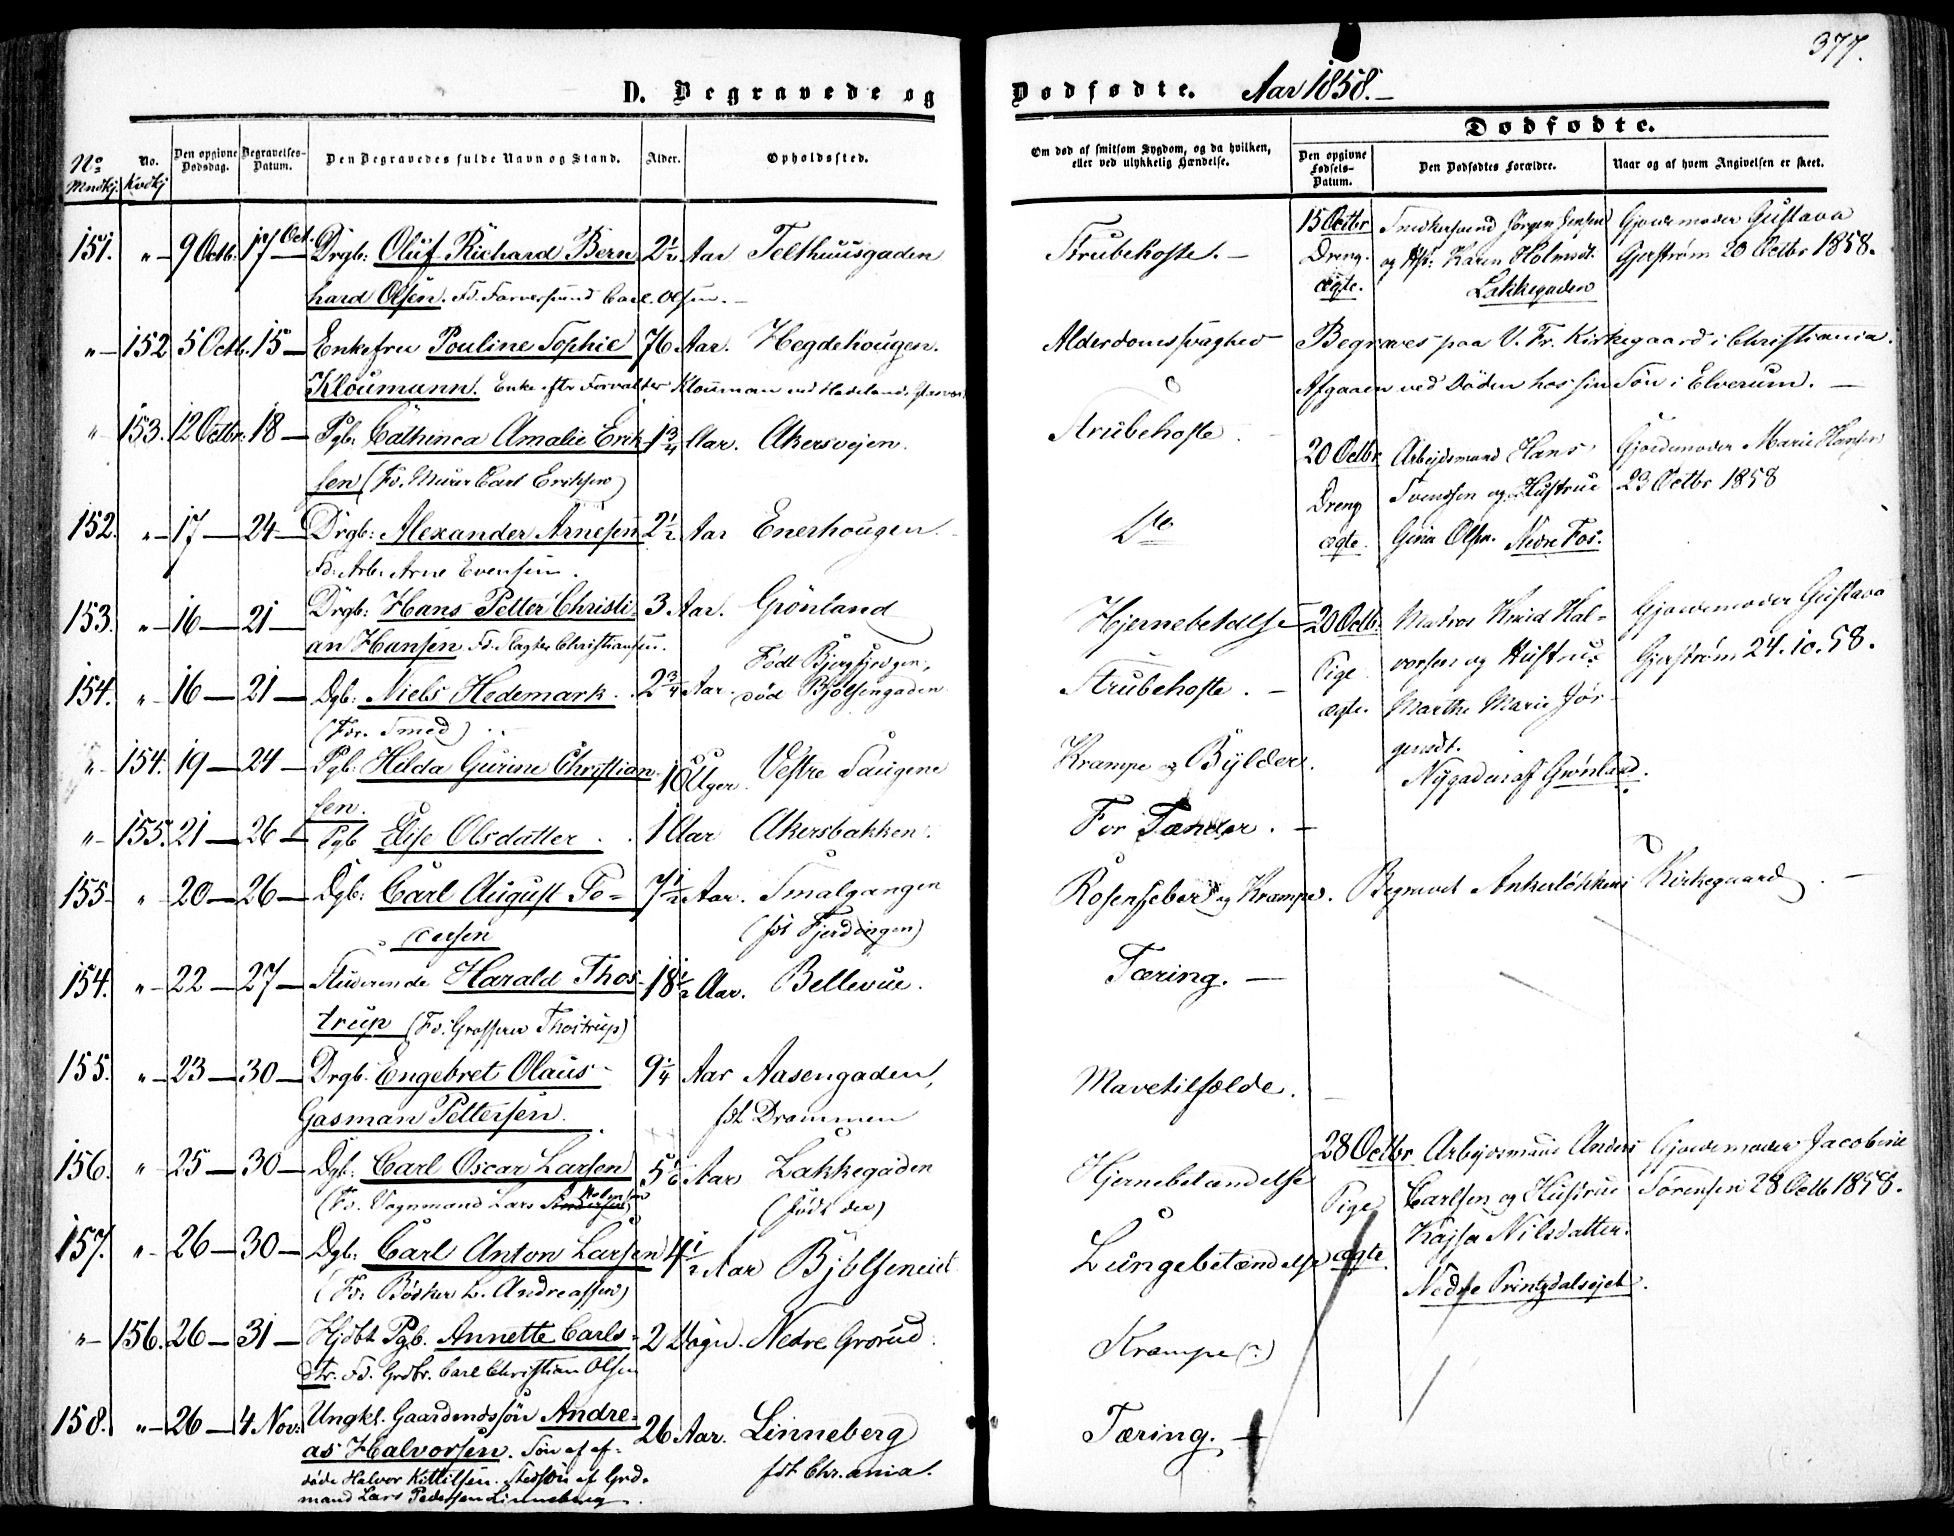 377.
D. Begravede og Dødfødte. Aar 1858.
Dødfødte.
No. Mndkj. No. Kvdkj Den opgivne Dødsdag. Begravelses-Datum. Den Begravedes fulde Navn og Stand. Alder. Opholdssted. Om død af smitsom Sygdom, og da hvilken, eller ved ulykkelig Hændelse. Den opgivne Fødsels-Datum. Den Dødfødtes Forældre. Naar og af hvem Angivelsen er skeet.
151. " 9 Octb. 17 Oct. Drgb: Oluf Richard Bern 2½ Aar Telthuusgaden
hard Olsen. Fd. Farversvend Carl Olsen.
" 152 5 Octb. 15 Enkefru Pouline Sophie 76 Aar. Hegdehougen.
Kloumann. Enke efter Forvalter Klouman ved Hadelands
" 153. 12 Octbr. 18 Pgb. Cathinca Amalie Erik 1¾ Aar. Akersvejen.
sen (Fd. Murer Carl Eriksen)
152. " 17 24 Drgb: Alexander Arnesen 2½ Aar Enerhougen
Fd: Arb: Arne Evensen.
153. " 16 21 Drgb: Hans Petter Christi- 3 Aar. Grønland
an Hansen Fd. Christiansen.
154. " 16 21 Dgb: Niels Hedemark. 2¾ Aar. Født
død Bjølsengaden
(For. Smed)
" 154. 19 24 Pgb: Hilda Gurine Christian 10 Uger. Vestre Saugene
sen.
" 155. 21 26 Pgb Elise Olsdatter 1 Aar Akersbakken.
155 " 20 26 Dgb: Carl August To- 7½ Aar. Smalgangen
(fdt Fjerdingen)
154. " 22 27 Studerende Harald Thos- 18½ Aar. Bellevue.
trup (Fd. Grosserer Thostrup)
155. " 23 30 Drgb. Engebret Olaus 9¼ Aar Aasengaden,
Gasman Pettersen. fdt Drammen
156. " 25 30 Dgb. Carl Oscar Larsen 5 Aar Lakkegaden
(Fd. Vognmand Lars (født der)
157. " 26 30 Dgb: Carl Anton Larsen 4½ Aar Bjølseneiet
(Fd: Bødker L. Andreassen)
" 156. 26 31 Hjdbt Pgb. Annette Carls- 2 Døgn. Nedre Grorud.
dtr. Fd. Grdbr. Carl Christian Olsen
158. " 26 4 Nov: Ungkl. Gaardmdssøn Andre- 26 Aar. Linneberg
as Halvorsen. Søn af af- fdt Chr.ania.
døde Halvor Kittilsen. Stedsøn af Grd-
mand Lars Pedersen Linneberg
Strubehoste.
15 Octbr Smedesvend Jørgen Jensen Gjordemoder Gustava
Dreng. og Hst: Karen Holmsdt. Gjerstrøm 20 Octbr 1858.
ægte. Lakkegaden
Alderdomssvaghed Begraves paa V. Fr. Kirkegaard i Christiania.
Afgaaen ved Døden hos sin Søn i Elverum.
Strubehoste
20 Octbr Arbejdsmand Hans Gjordemoder Marie Hansen
Dreng Svenssen og Hustrue 23 Octbr 1858
ægte. Gina Olsen. Nedre Fos.
Do
Hjernebetdlse 20 Octb. Matros Knud Hal- Gjordemoder Gustava
Pige vorsen og Hustru Gjerstrøm 24.10.58.
Strubehoste.
ægte. Marthe Marie Jør-
gensdt.
Nygaden af Grønland.
Krampe og Bylder.
For Tænder.
Rosenfeber og Krampe. Begravet Ankerløkkens Kirkegaard.
Tæring.
Mavetilfælde.
Hjernebetændelse
28 Octbr. Arbejdsmand Anders Gjordemoder Jacobine
Pige Carlsen og Hustrue Sørensen 28 Octb 1858.
Kajsa Nilsdatter.
Lungebetændelse ægte.
Nedre Printzdalsejet.
Krampe (?)
Tæring.